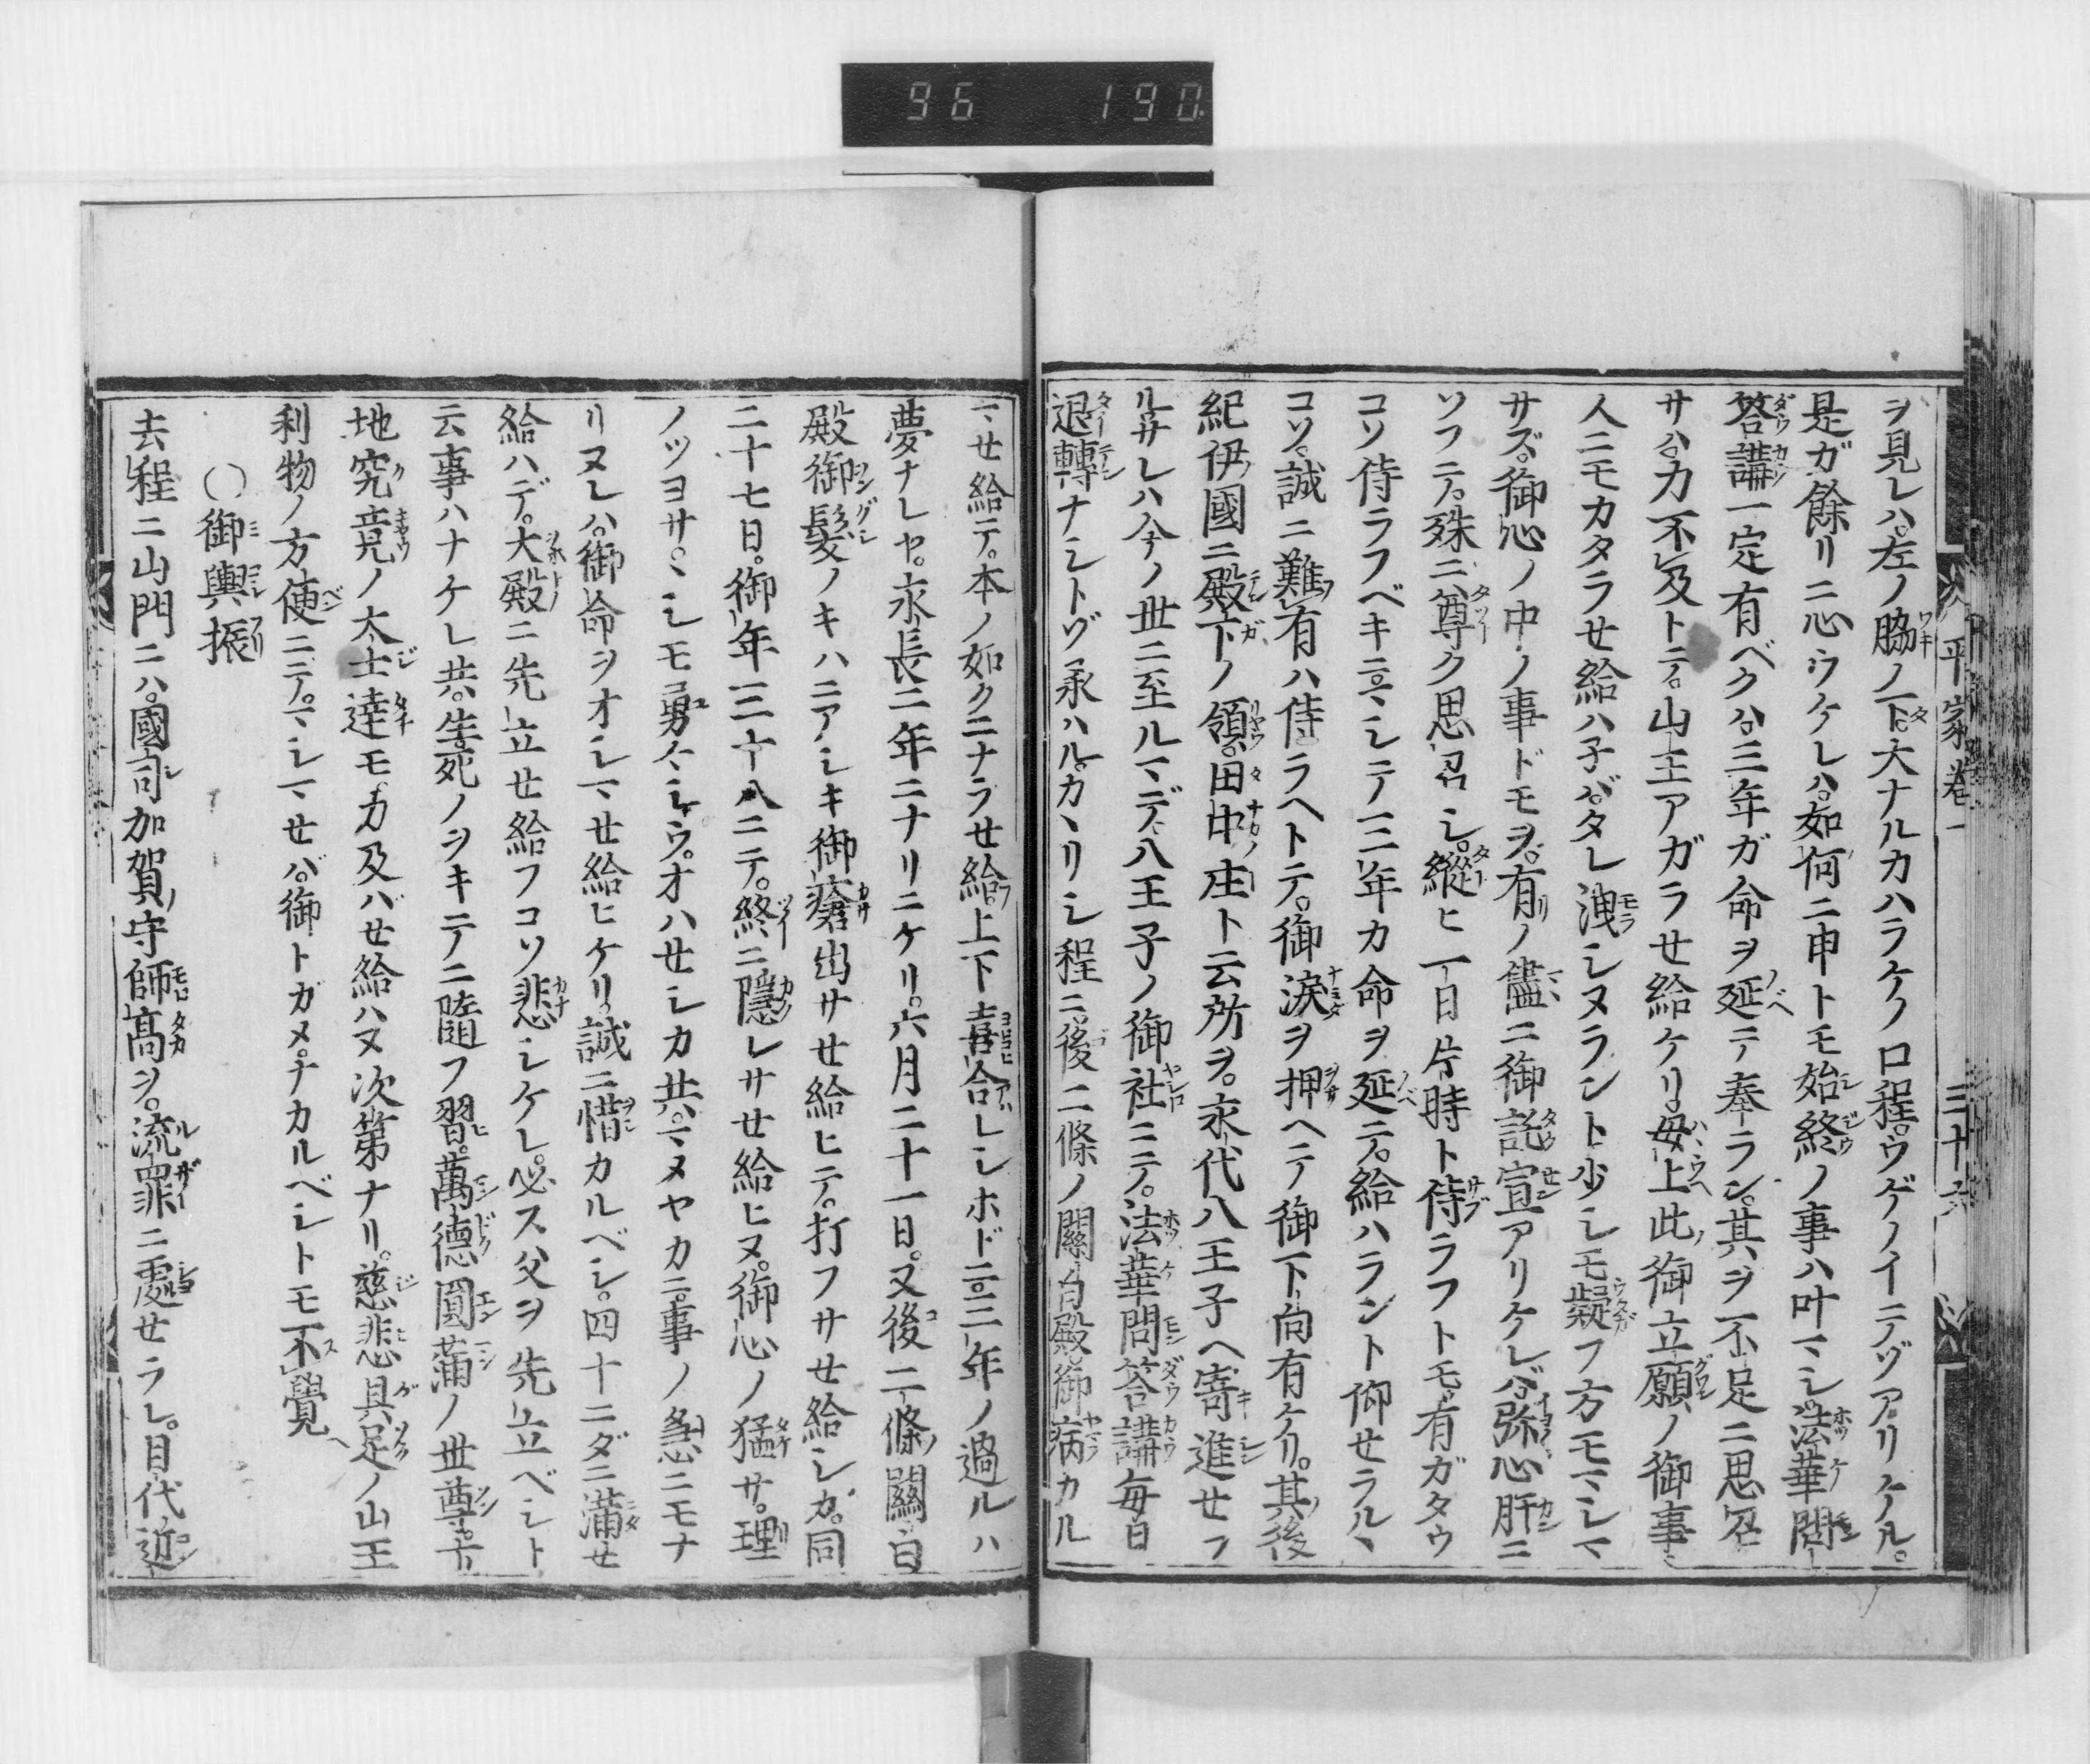 96 190
平家巻一 三十六
ヲ見レハ。左ノ脇ノ下。大ナルカハラケノ口程。ウゲノイテゾアリケル。
是ガ餘リニ心ウケレハ。如何ニ申トモ始終ノ事ハ叶マシ。法華問
答講一定有ベクハ。三年ガ命ヲ延テ奉ラン。其ヲ不足ニ思召
サハ。力不及トテ。山王アガラセ給ケリ。母上此御立願ノ御事ヲ
人ニモカタラせ給ハ子バ。タレ洩シヌラント少シモ疑フ方モマシマ
サズ。御心ノ中ノ事ドモヲ。有ノ儘ニ御託宣アリケレバ。弥心肝ニ
ソフテ。殊ニ尊ク思召シ。縦ヒ一日片時ト侍ラフトモ。有ガタウ
コソ侍ラフベキニ。マシテ三年カ命ヲ延テ。給ハラント仰せラルヽ
コソ。誠ニ難有ハ侍ラヘトテ。御淚ヲ押ヘテ御下向有ケリ。其後
紀伊國ニ殿下ノ領。田中庄ト云所ヲ。永代八王子ヘ寄進せラ
ルサレハ今ノ世ニ至ルマデ。八王子ノ御社ニテ。法華問答講毎日
退轉ナシトゾ承ハル。カヽリシ程ニ。後二條ノ關白殿。御病カル
マせ給テ。本ノ如クニナラせ給。上下喜合レシホドニ。三年ノ過ルハ
夢ナレヤ。永長二年ニナリニケリ。六月二十一日。又後二條關白
殿御髪ノキハニアシキ御瘡出サせ給ヒテ。打フサせ給シカ。同
二十七日。御年三十八ニテ。終ニ隱レサせ給ヒヌ。御心ノ猛サ。理
ノツヨサ。サシモ勇々シウ。オハせシカ共。マメヤカニ。事ノ急ニモナ
リヌレハ。御命ヲオシマせ給ヒケリ。誠ニ惜カルベシ。四十ニダニ滿せ
給ハデ。大殿ニ先立せ給フコソ悲シケレ。必ス父ヲ先立ベシト
云事ハナケレ共。生死ノヲキテニ隨フ習ヒ。萬德圓滿ノ世尊。十
地究竟ノ大士達モ。力及バせ給ハヌ次第ナリ。慈悲具足ノ山王
利物ノ方便ニテ。マシマせバ。御トガメナカルベシトモ不覺
○御輿振
去程ニ山門ニハ。國司加賀守師高ヲ。流罪ニ處せラレ。目代近